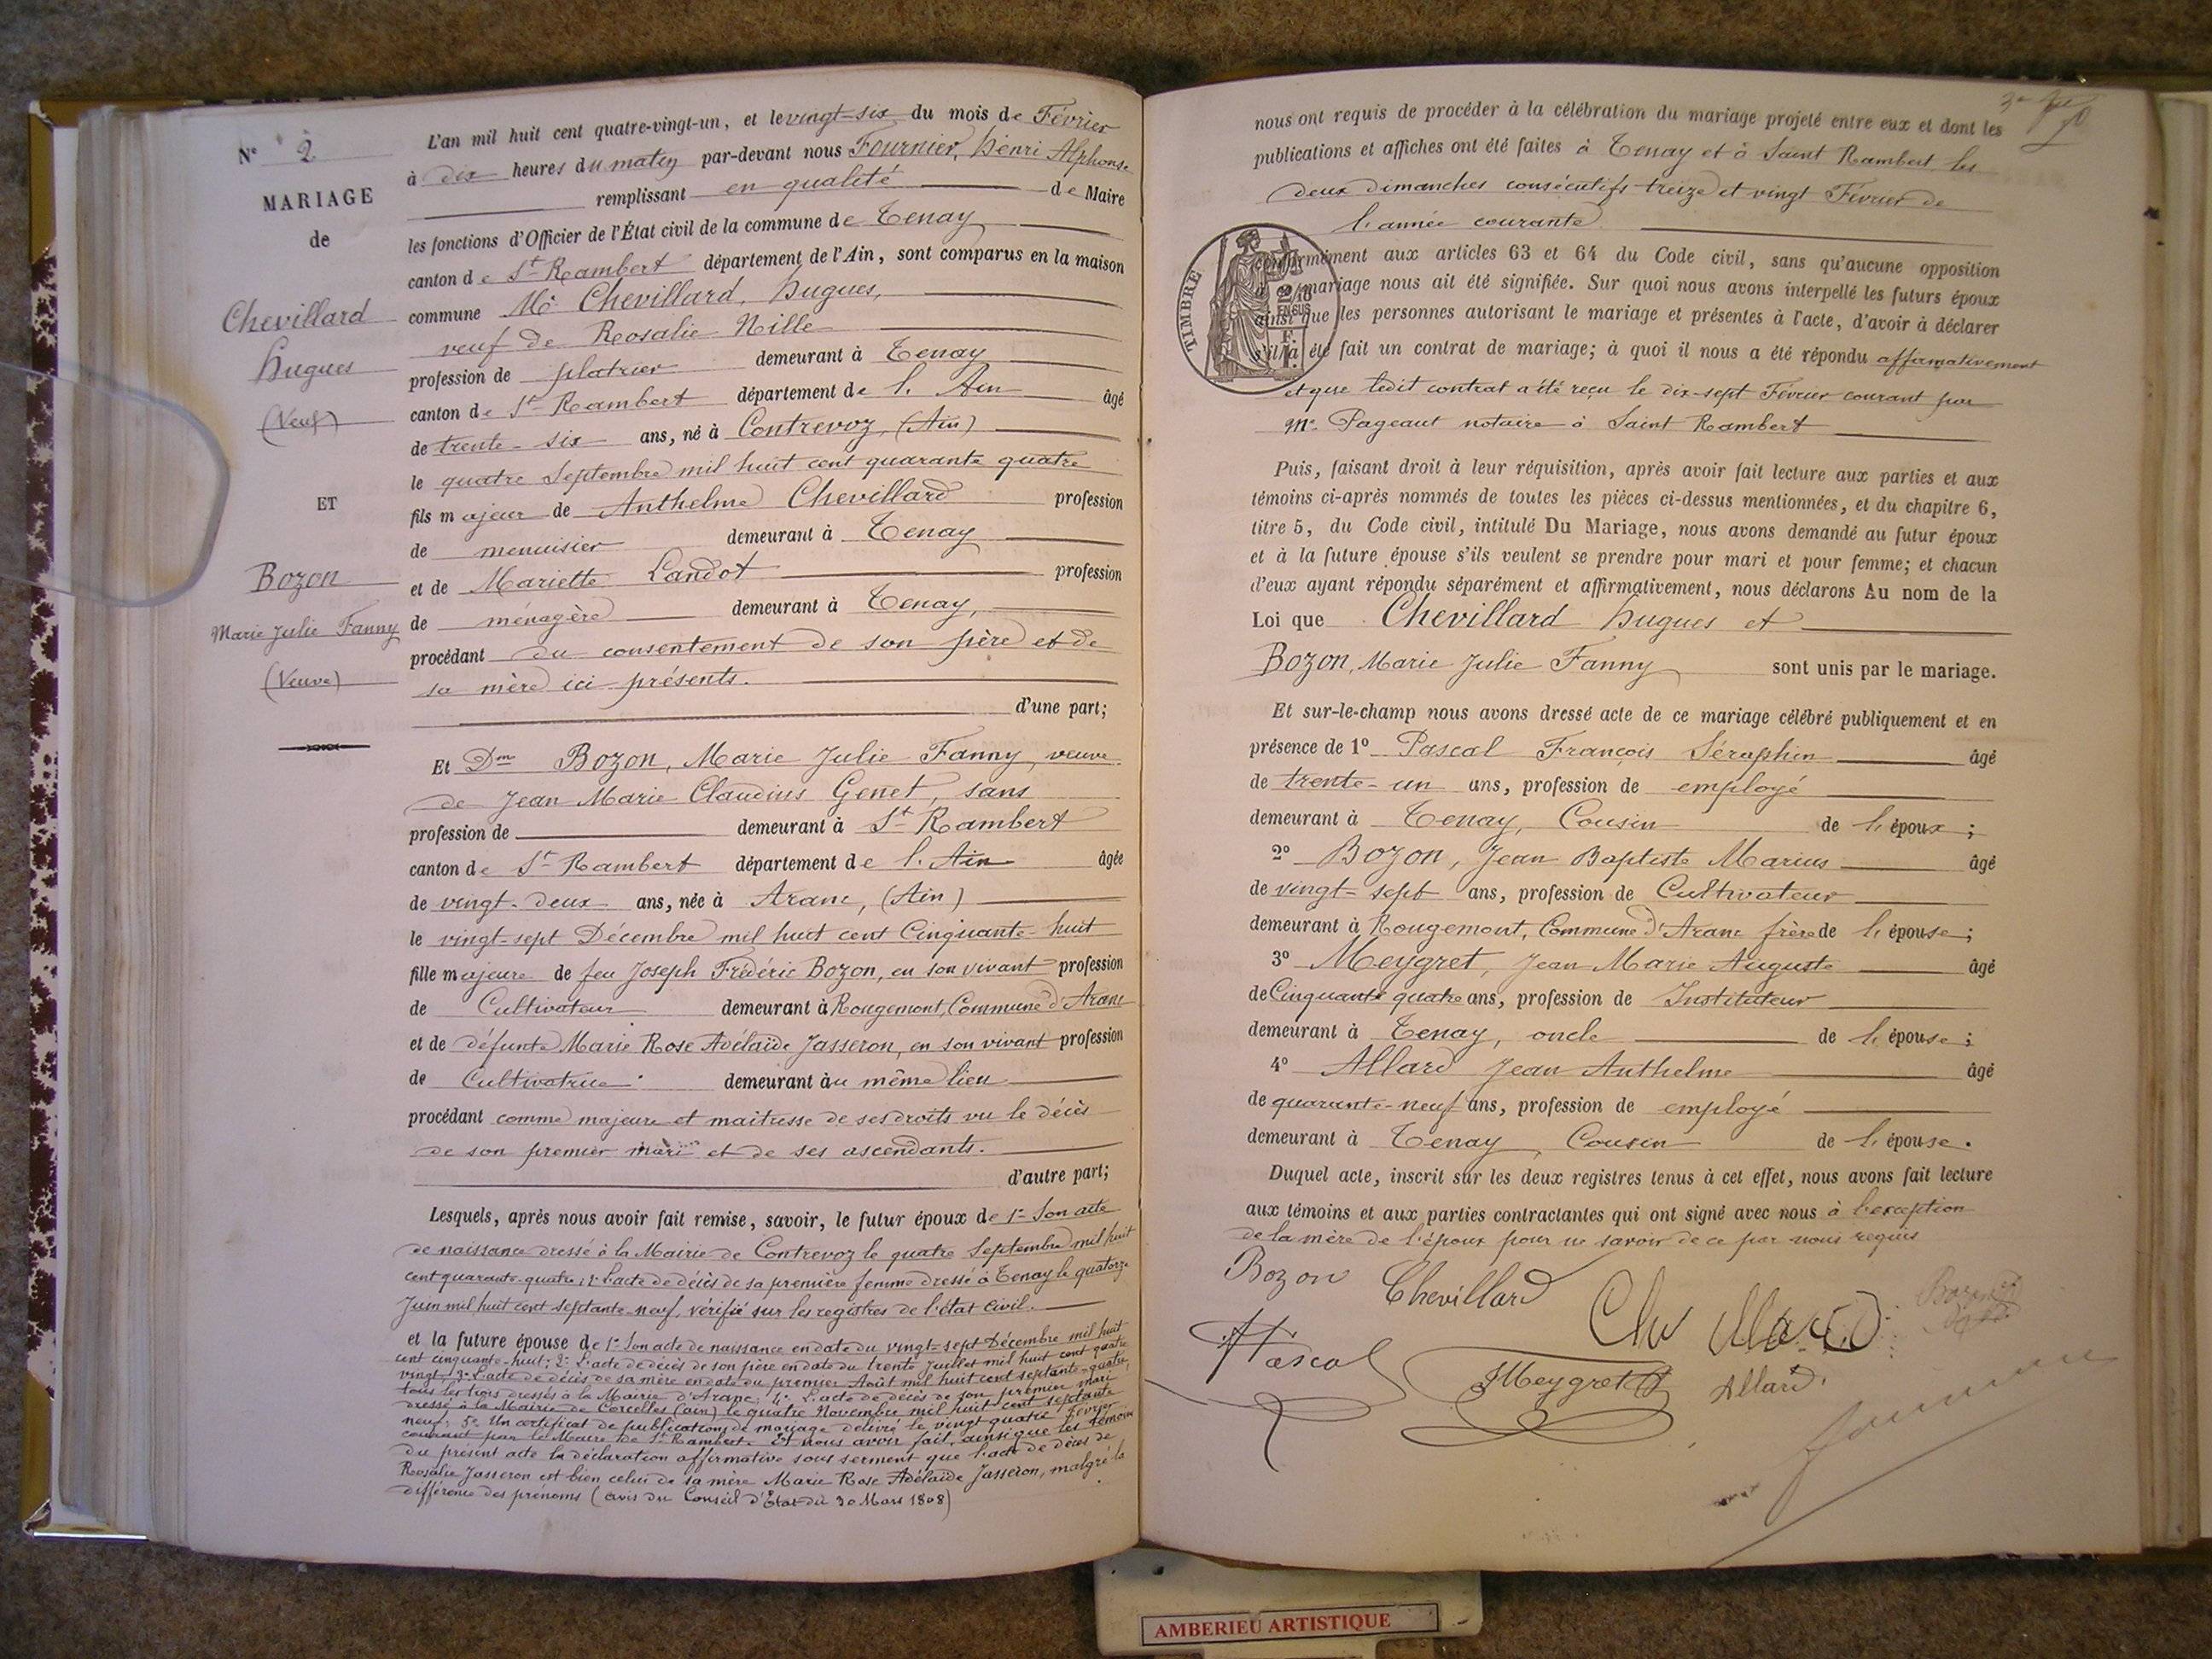 N° 2
MARIAGE
de
Chevillard
Hugues
(Veuf)
ET
Bozon
Marie Julie Fanny
(Veuve)
L'an mil huit cent quatre-vingt-un, et le vingt-six du mois de Février
à dix heures du matin par-devant nous Fournier, Henri Alphonse
remplissant en qualité de Maire
les fonctions d'Officier de l'État civil de la commune de Tenay
canton de St Rambert département de l'Ain, sont comparus en la maison
commune Mr Chevillard, Hugues,
veuf de Rosalie Nille
profession de platrier demeurant à Tenay
canton de St Rambert département de l'Ain âgé
de trente-six ans, né à Contrevoz, (Ain)
le quatre Septembre mil huit cent quarante quatre
fils majeur de Anthelme Chevillard profession
de menuisier demeurant à Tenay
et de Mariette Landot profession
de ménagère demeurant à Tenay,
procédant du consentement de son père et de
sa mère ici présents.
d'une part;
Et Dme Bozon, Marie Julie Fanny, veuve
de Jean Marie Claudius Genet, sans
profession de demeurant à St Rambert
canton de St Rambert département de l'Ain âgée
de vingt-deux ans, née à Aranc, (Ain)
le vingt-sept Décembre mil huit cent Cinquante-huit
fille majeure de feu Joseph Frédéric Bozon, en son vivant profession
de Cultivateur demeurant à Rougemont, Commune d'Aranc
et de défunte Marie Rose Adélaïde Jasseron, en son vivant profession
de Cultivatrice demeurant au même lieu
procédant comme majeure et maitresse de ses droits vu le décès
de son premier mari et de ses ascendants.
d'autre part;
Lesquels, après nous avoir fait remise, savoir, le futur époux de 1° Son acte
de naissance dressé à la Mairie de Contrevoz le quatre Septembre mil huit
cent quarante-quatre; 2° L'acte de décès de sa première femme dressé à Tenay le quatorze
Juin mil huit cent septante-neuf, vérifié sur les registres de l'état civil.
et la future épouse de 1° Son acte de naissance en date du vingt-sept Décembre mil huit
cent cinquante-huit; 2° L'acte de décès de son père en date du trente Juillet mil huit cent quatre
vingt; 3° L'acte de décès de sa mère en date du premier Août mil huit cent septante-quatre,
tous les trois dressés à la Mairie d'Aranc; 4° L'acte de décès de son premier mari
dressé à la Mairie de Corcelles (Ain) le quatre Novembre mil huit cent septante
neuf; 5° Un certificat de publications de mariage délivré le vingt quatre Février
courant par le Maire de St Rambert. Et nous avoir fait, ainsi que les témoins
du présent acte la déclaration affirmative sous serment que l'acte de décès de
Rosalie Jasseron est bien celui de sa mère Marie Rose Adélaïde Jasseron, malgré la
différence des prénoms (avis du Conseil d'État du 30 Mars 1808)
nous ont requis de procéder à la célébration du mariage projeté entre eux et dont les
publications et affiches ont été faites à Tenay et à Saint Rambert les
deux dimanches consécutifs treize et vingt Février de
l'année courante
conformément aux articles 63 et 64 du Code civil, sans qu'aucune opposition
mariage nous ait été signifiée. Sur quoi nous avons interpellé les futurs époux
ainsi que les personnes autorisant le mariage et présentes à l'acte, d'avoir à déclarer
s'il a été fait un contrat de mariage; à quoi il nous a été répondu affirmativement
et que ledit contrat a été reçu le dix-sept Février courant par
Me Pageaut notaire à Saint Rambert
TIMBRE
Puis, faisant droit à leur réquisition, après avoir fait lecture aux parties et aux
témoins ci-après nommés de toutes les pièces ci-dessus mentionnées, et du chapitre 6,
titre 5, du Code civil, intitulé Du Mariage, nous avons demandé au futur époux
et à la future épouse s'ils veulent se prendre pour mari et pour femme; et chacun
d'eux ayant répondu séparément et affirmativement, nous déclarons Au nom de la
Loi que Chevillard Hugues et
Bozon, Marie Julie Fanny sont unis par le mariage.
Et sur-le-champ nous avons dressé acte de ce mariage célébré publiquement et en
présence de 1° Pascal François Séraphin âgé
de trente-un ans, profession de employé
demeurant à Tenay, Cousin de l'époux;
2° Bozon, Jean Baptiste Marius âgé
de vingt-sept ans, profession de Cultivateur
demeurant à Rougemont, Commune d'Aranc frère de l'épouse;
3° Meygret, Jean Marie Auguste âgé
de Cinquante quatre ans, profession de Instituteur
demeurant à Tenay, oncle de l'épouse;
4° Allard Jean Anthelme âgé
de quarante-neuf ans, profession de employé
demeurant à Tenay, Cousin de l'épouse.
Duquel acte, inscrit sur les deux registres tenus à cet effet, nous avons fait lecture
aux témoins et aux parties contractantes qui ont signé avec nous à l'exception
de la mère de l'époux pour ne savoir de ce par nous requis
Bozon Chevillard
Pascal Meygret Allard
Fournier
AMBERIEU ARTISTIQUE